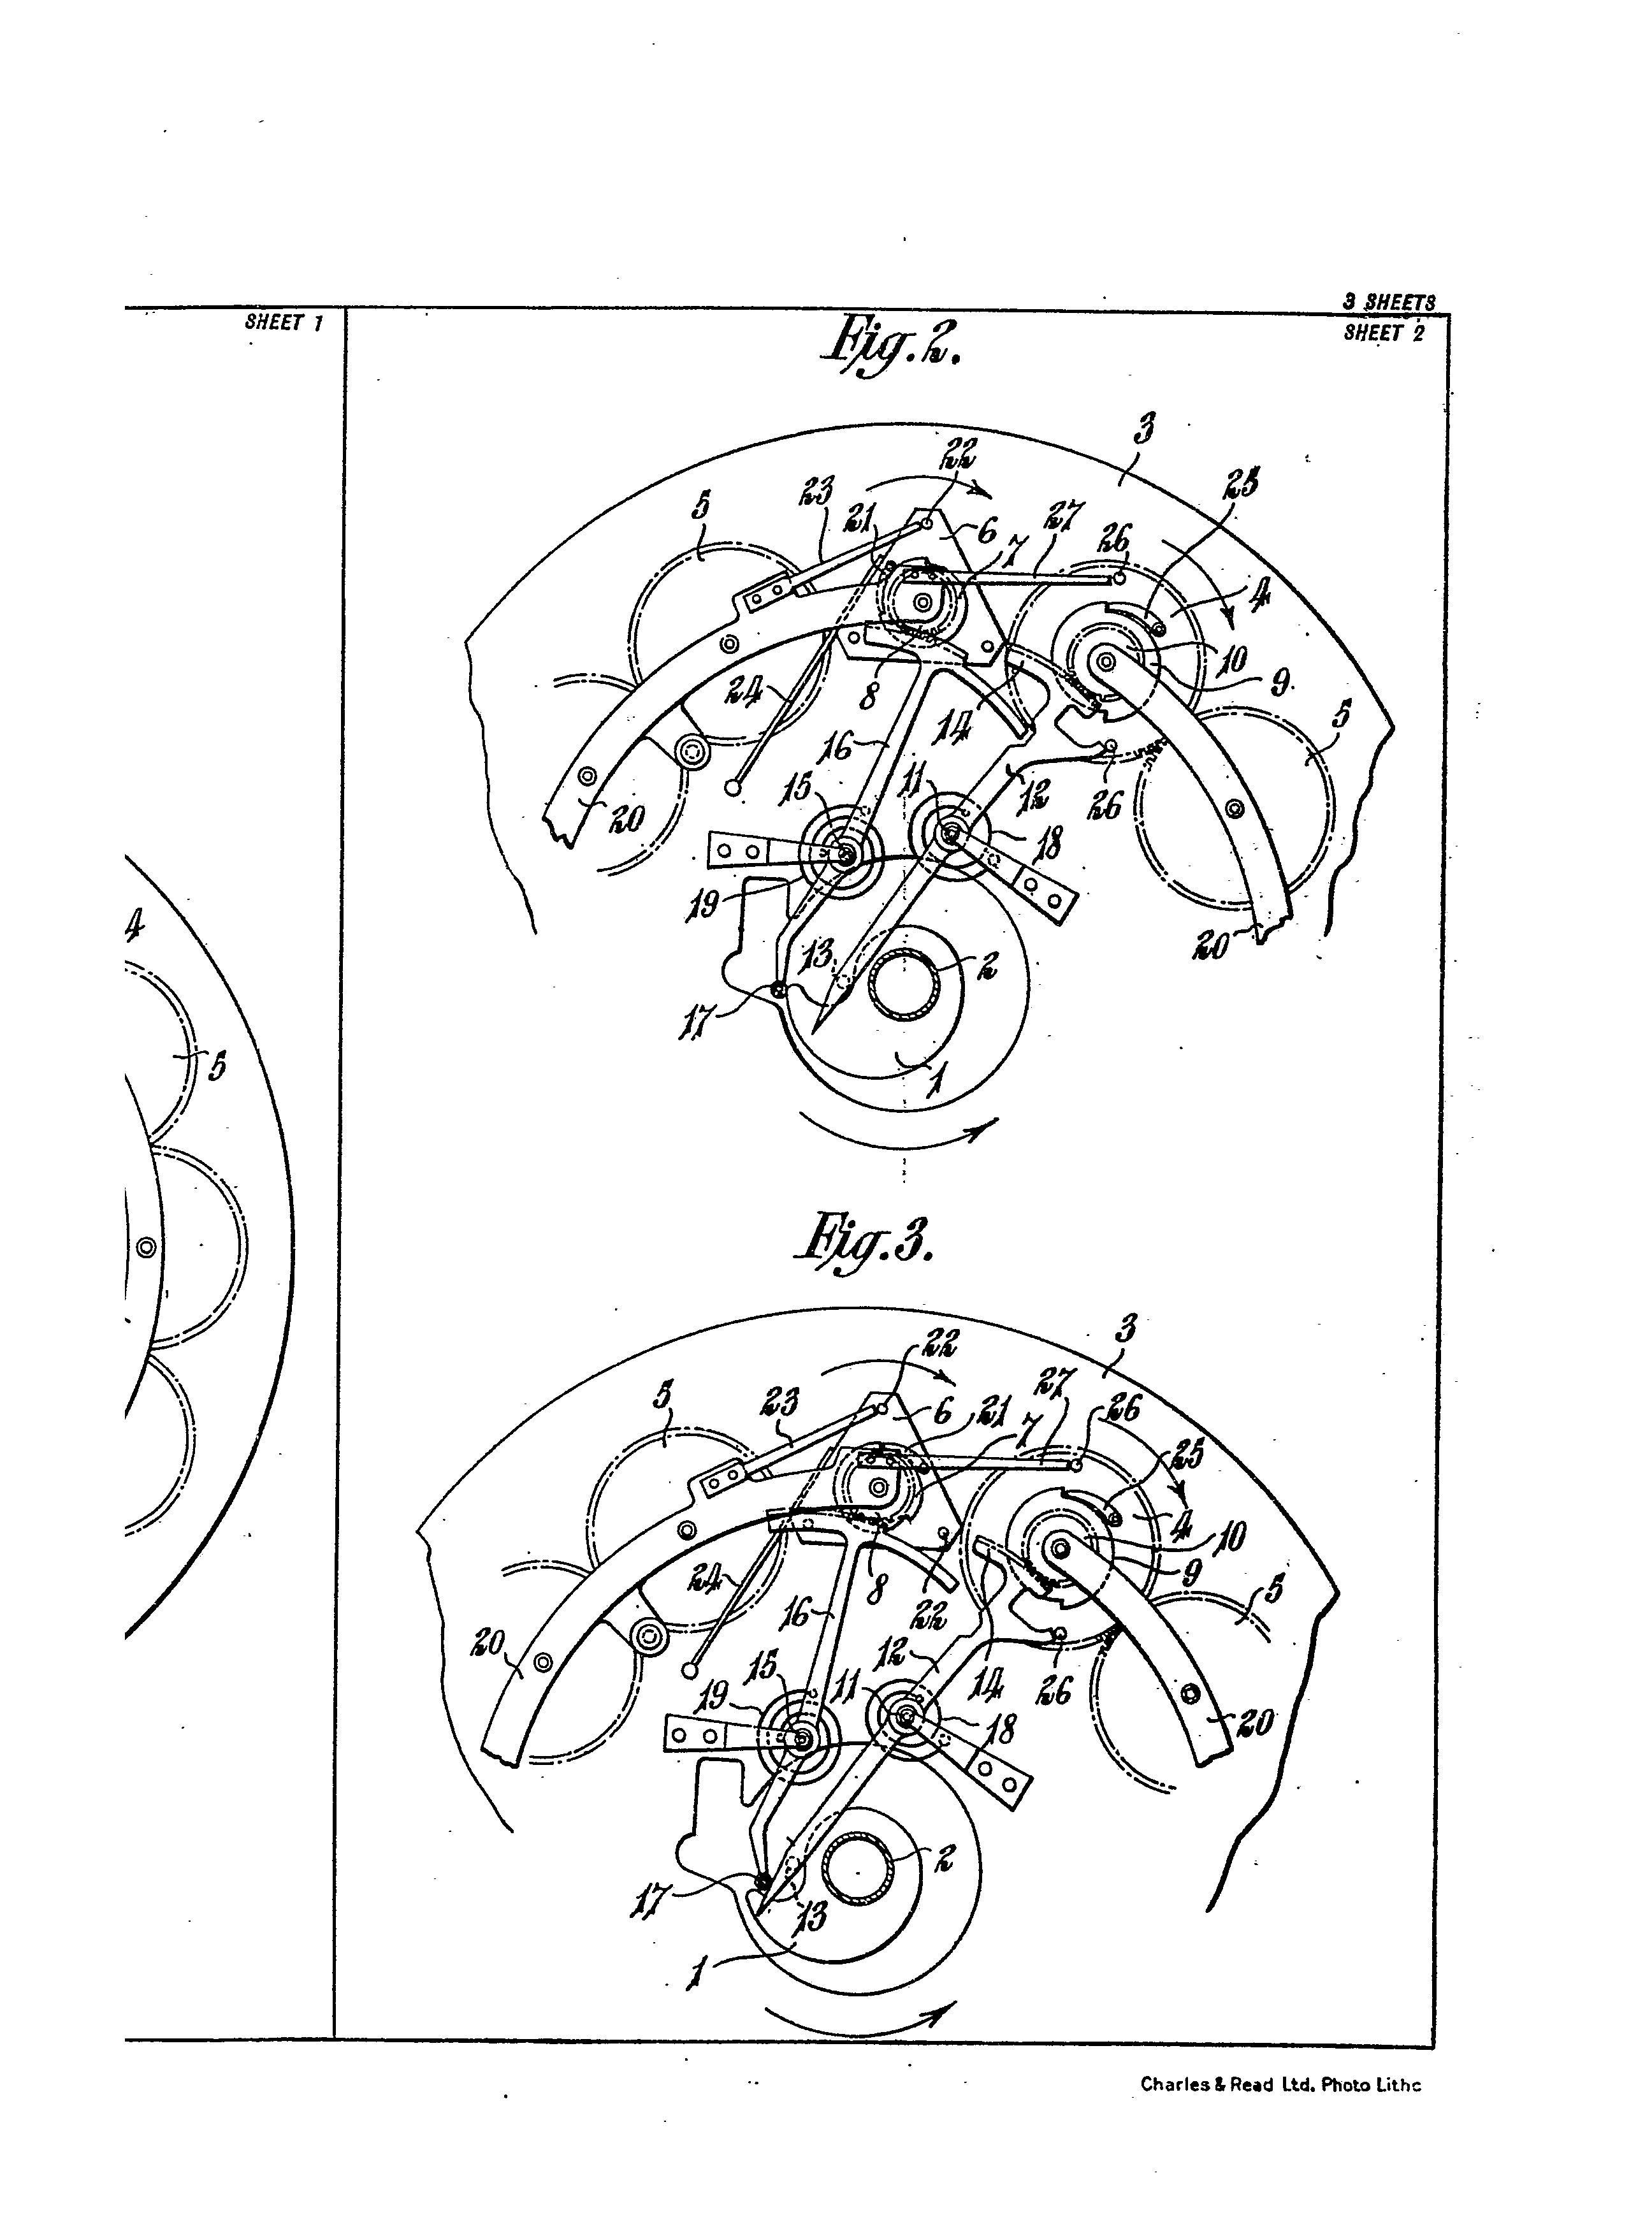 3 SHEETS
SHEET 1
SHEET 2
Fig. 2.
3
22
25
23
21
5
6
27
26
7
4
10
9
8
24
14
5
16
11
15
12
26
20
18
19
20
13
2
17
1
4
5
Fig. 3.
3
22
27
5
23
6
21
7
26
25
4
10
9
24
8
5
16
22
20
12
15
14
26
19
11
18
20
2
17
13
1
Charles & Read Ltd. Photo Litho